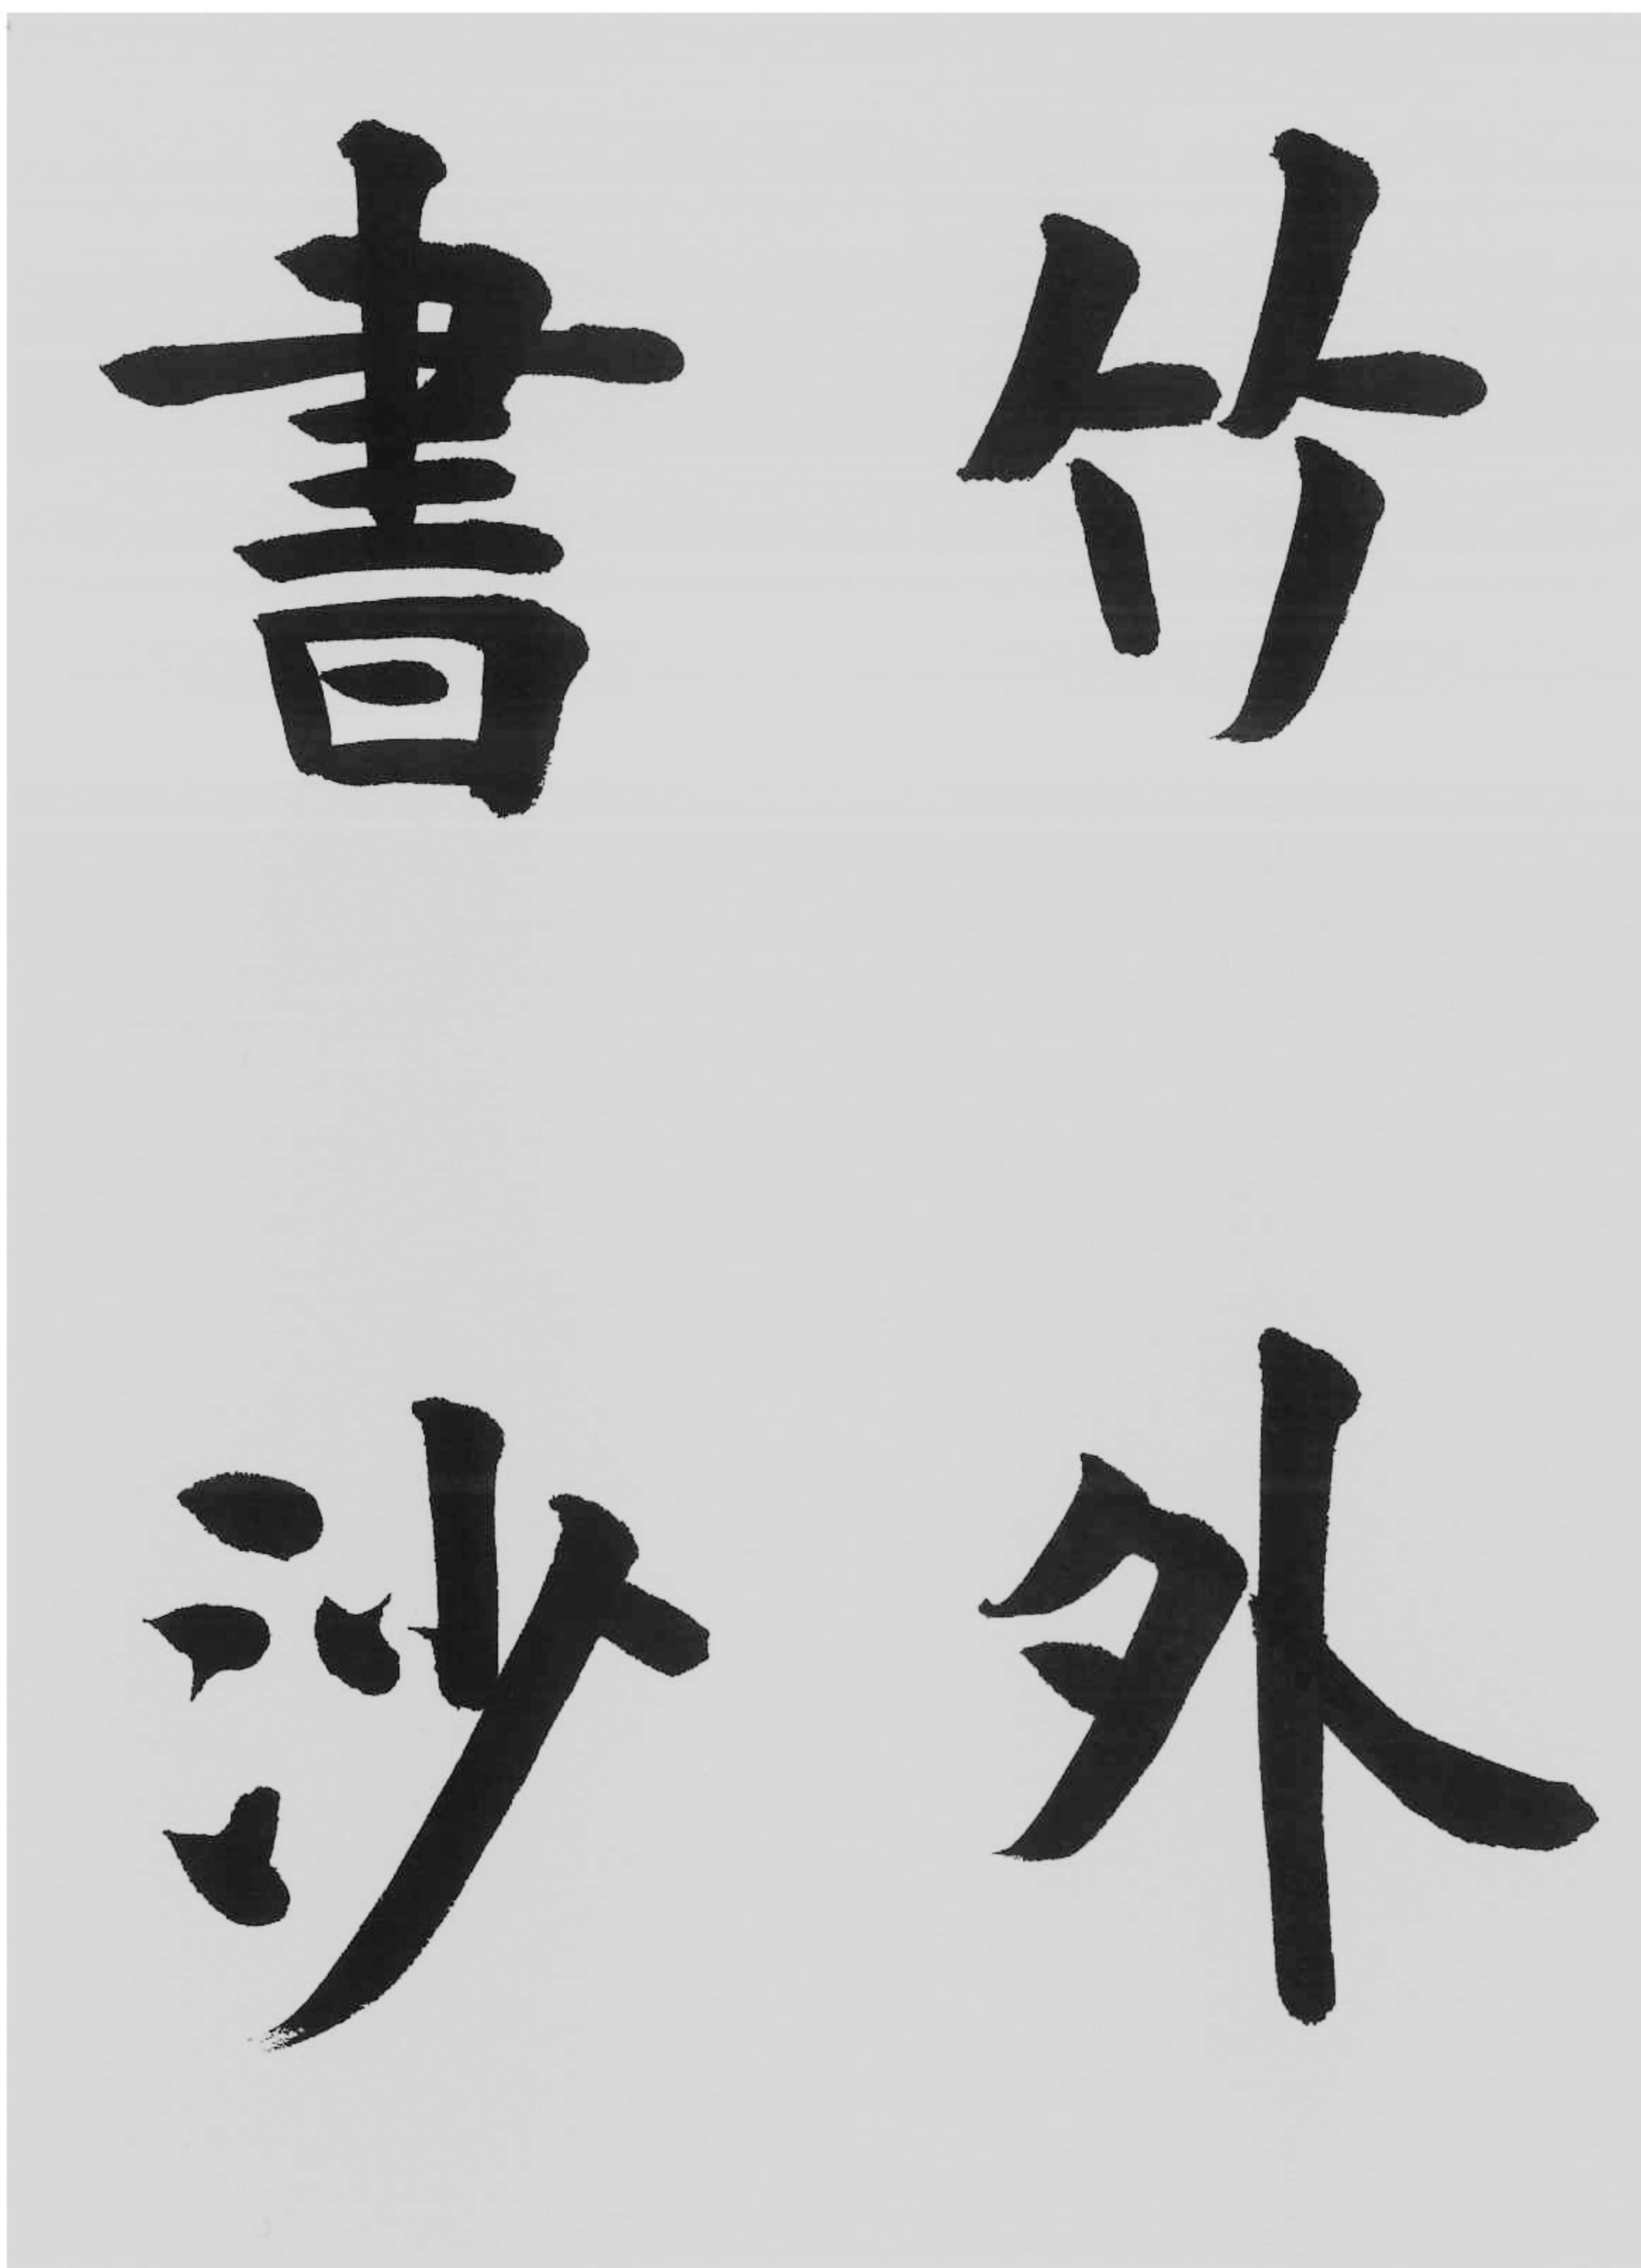 竹外
書沙